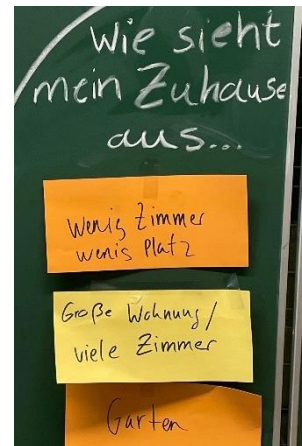 Wie sieht
mein Zuhause
aus...
Wenig Zimmer
wenig Platz
Große Wohnung/
viele Zimmer
Garten